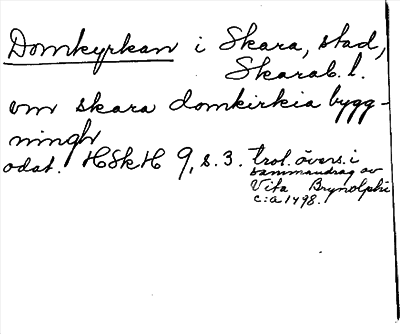 Domkyrkan i Skara, stad,
Skarab. l.
om skara domkirkia bygg-
ningh
odat. HSkH 9, s. 3. trol. övers. i
sammandrag av
Vita Brynolphi
c:a 1498.